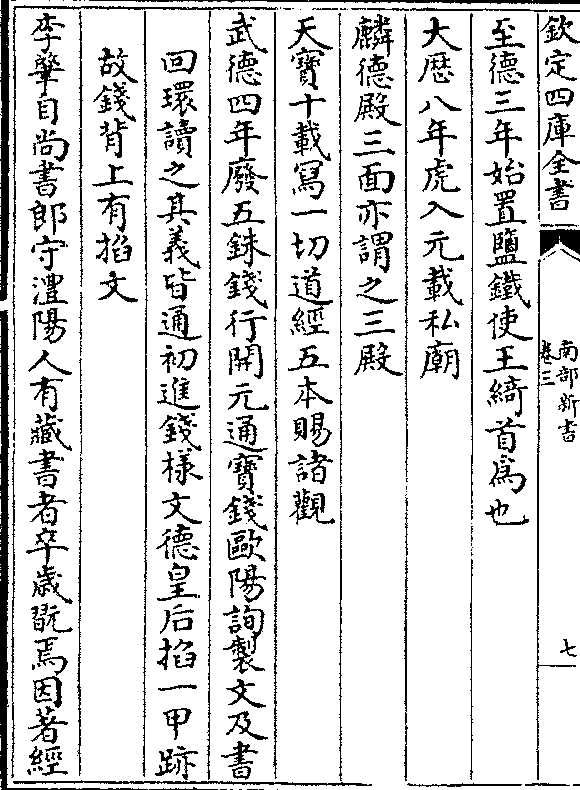 欽定四庫全書
南部新書
卷三
七
至德三年始置鹽鐵使王綺首爲也
大厯八年虎入元載私廟
麟德殿三面亦謂之三殿
天寶十載寫一切道經五本賜諸觀
武德四年廢五銖錢行開元通寶錢歐陽詢製文及書
回環讀之其義皆通初進錢樣文德皇后掐一甲跡
故錢背上有掐文
李肇自尚書郎守澧陽人有藏書者卒歲翫焉因著經